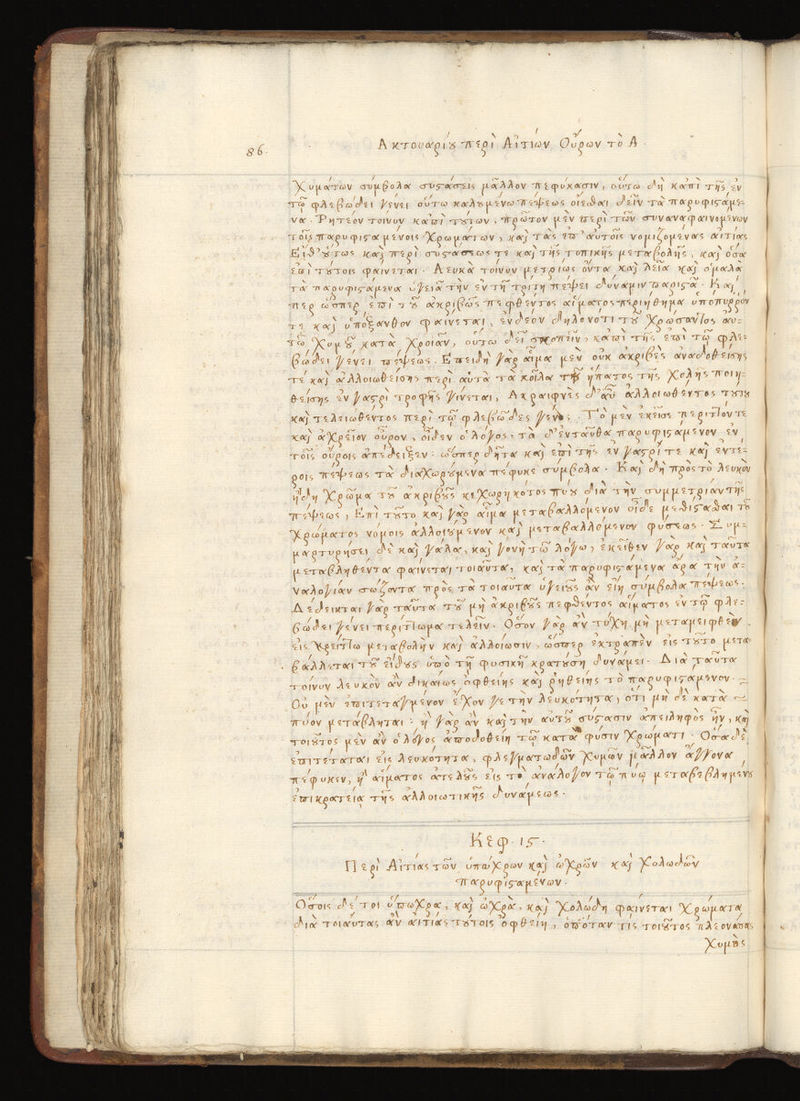 86.
Ακτουαρίȣ περὶ Αἰτιών Οὔρων τὸ Α.
Χυμάτων σύμβολα συϛάσεις μᾶλλον πεφύκασιν, οὕτω δὴ κἀπὶ τῆς ἐν
τῷ φλεβώδει γένει οὕτω καλȣμένω πέψεως οἴεσθαι δεῖν τὰ παρυφιϛάμε-
να. Ῥητέον τοίνυν κἀπὶ τȣτων, πρῶτον μὲν περὶ τῶν συναναφαινομένων
τοῖς παρυφιϛαμένοις Χρωμάτων, καὶ τὰς ἐπ' αὐτοῖς νομιζομένας αἰτίας
Εἶθ' ȣτως καὶ περὶ συϛάσεως τὲ καὶ τῆς τοπικῆς μεταβολῆς, καὶ ὅσα
ἐπὶ τȣτοις φαίνεται. Λευκὰ τοίνυν μετρίως ὄντα καὶ λεῖα καὶ ὁμαλὰ
τὰ παρυφιϛάμενα ὑγειᾶ τὴν ἐν τῆ τρίτη πέψει δύναμιν παριϛᾶ. Καὶ
περ ὥσπερ ἐπὶ τȣ ἀκριβῶς πεφθέντος αἵματος περιήθημα ὑπόπυρρόν
τε καὶ ὑπόξανθον φαίνεται, ἐνδέον δηλονότι τȣ Χρώσαντος αὐ-
τῶ Χυμȣ κατὰ Χροιὰν, οὕτω δεῖ σκοπεῖν, κἀπὶ τῆς ἐπὶ τῷ φλε-
βώδει γένει πέψεως. Ἐπειδὴ γὰρ αἷμα μὲν οὐκ ἀκριβὲς ἀναδοθείσης
τὲ καὶ ἀλλοιωθείσης περὶ αὐτὰ τὰ κοῖλα τȣ ἥπατος τῆς Χολῆς ποιη-
θείσης ἐν γαϛρὶ τροφῆς γίνεται, Ἀκραιφνὲς δ' αὖ ἀλλοιωθέντος τȣτȣ
καὶ τελειωθέντος περὶ τῷ φλεβῶδες γένος. Τὸ μὲν ἐκεῖσε περιττόν τε
καὶ ἀχρεῖον οὖρον, οἶδεν ὁ λόγος, τὰ δ' ἐνταῦθα παρυφιϛάμενον ἐν
τοῖς οὔροις ἀπέδειξεν, ὥσπερ δῆτα καὶ ἐπὶ τῆς ἐν γαϛρί τε καὶ ἐντέ-
ροις πέψεως τὰ διαχωρȣμενα πέφυκε σύμβολα. Καὶ δὴ πρὸς τὸ λευκὸν
ἤδη Χρῶμα τȣ ἀκριβȣς κεχωρηκότος πȣ διὰ τὴν συμμετρίαν τῆς
πέψεως, Ἐπὶ τȣτο καὶ γὰρ αἷμα μεταβαλλόμενον οἶδε μεθίϛασθαι τȣ
Χρώματος νόμοις ἀλλοιȣμενον καὶ μεταβαλλόμενον φύσεως. Συμ-
μαρτυρήσει δὲ καὶ γάλα, καὶ γονὴ τῷ λόγω, ἐκεῖθεν γὰρ καὶ ταῦτα
μεταβληθέντα φαίνεται τοιαῦτα, καὶ τὰ παρυφιϛάμενα ἄρα τὴν ἀ-
ναλογίαν σώζοντα πρὸς τὰ τοιαῦτα ὑγειȣς ἂν εἴη σύμβολα πέψεως.
Δέδεικται γὰρ ταῦτα τȣ μὴ ἀκριβȣς πεφθέντος αἵματος ἐν τῷ φλε-
βώδει γένει περίττωμα τελεῖν. Ὅσον γὰρ ἂν τύχη μὴ μεταμειφθὲν
εἰς κρείττω μεταβολὴν καὶ ἀλλοίωσιν, ὥσπερ ἐκτραπὲν εἰς τȣτο μετα-
βάλλεται τȣ εἴδȣς ὑπὸ τῆ φυσικῆ κρατȣση δυνάμει. Διὰ ταῦτα
τοίνυν λευκὸν ἂν δικαίως ὀφθείης καὶ ῥηθείης τὸ παρυφιϛάμενον.
Οὐ μὲν ἐπιτεταγμένον ἔχον γε τὴν λευκότητα, ὅτι μὴ δὲ κατὰ
πύον μεταβληται. ἢ γὰρ ἂν καὶ τὴν αὐτȣ σύϛασιν ἀπειληφὸς ἦν, καὶ
τοιȣτος μὲν ἂν ὁ λόγος ἀποδοθείη τῷ κατὰ φύσιν Χρώματι. Ὅσα δὲ
ἐπιτέταται εἰς λευκότητα, φλεγματωδῶν Χυμῶν μᾶλλον ἄγγονα
πέφυκεν, ἢ αἵματος ἀτελȣς εἰς τὸ ἀνάλογον τῷ πύῳ μεταβεβλημένȣ
ἐπικρατεία τῆς ἀλλοιωτικῆς δυνάμεως.
Κεφ. ις.
Περὶ Αἰτίας τῶν ὑπώχρων καὶ ὠχρῶν καὶ Χολωδῶν
παρυφιϛαμένων.
Ὅσοις δέ τοι ὕπωχρα, καὶ ὠχρὰ, καὶ Χολώδη φαίνεται Χρώματα
διὰ τοιαύτας ἂν αἰτίας τȣτοις ὀφθείη, ὁπόταν τις τοιȣτος πλεονάσας
Χυμὸς